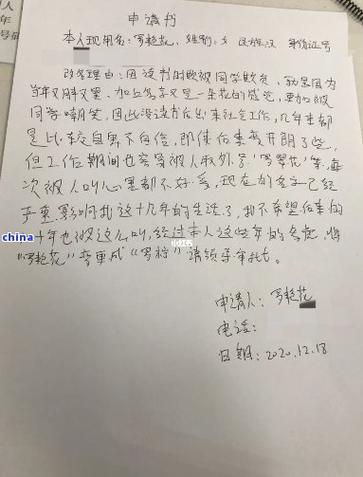 申请书
本人现用名：罗艳花，性别：女 民族汉 身份证号
改名理由：因读书时就被同学欺负，就是因为
当年又胖又黑、加上名字又是一朵花的感觉，更加被
同学嘲笑，因此没读书后出来社会工作，几年来都
是比较自卑不自信，即使后来变开朗了些，
但工作期间也会常被人取外号"罗翠花"等，每
次被人叫心里都不好受，现在的名字已经
严重影响我这十几年的生活了，我不希望后来的
十年也被这么叫，经过本人这些年的考虑，将
"罗艳花"变更成"罗粽"请领导审批。
申请人：罗艳花
电话：
日期：2020.12.18
小红书
china
人
年
号